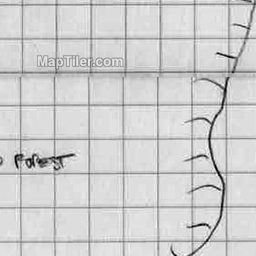 MapTiler.com
FOREST